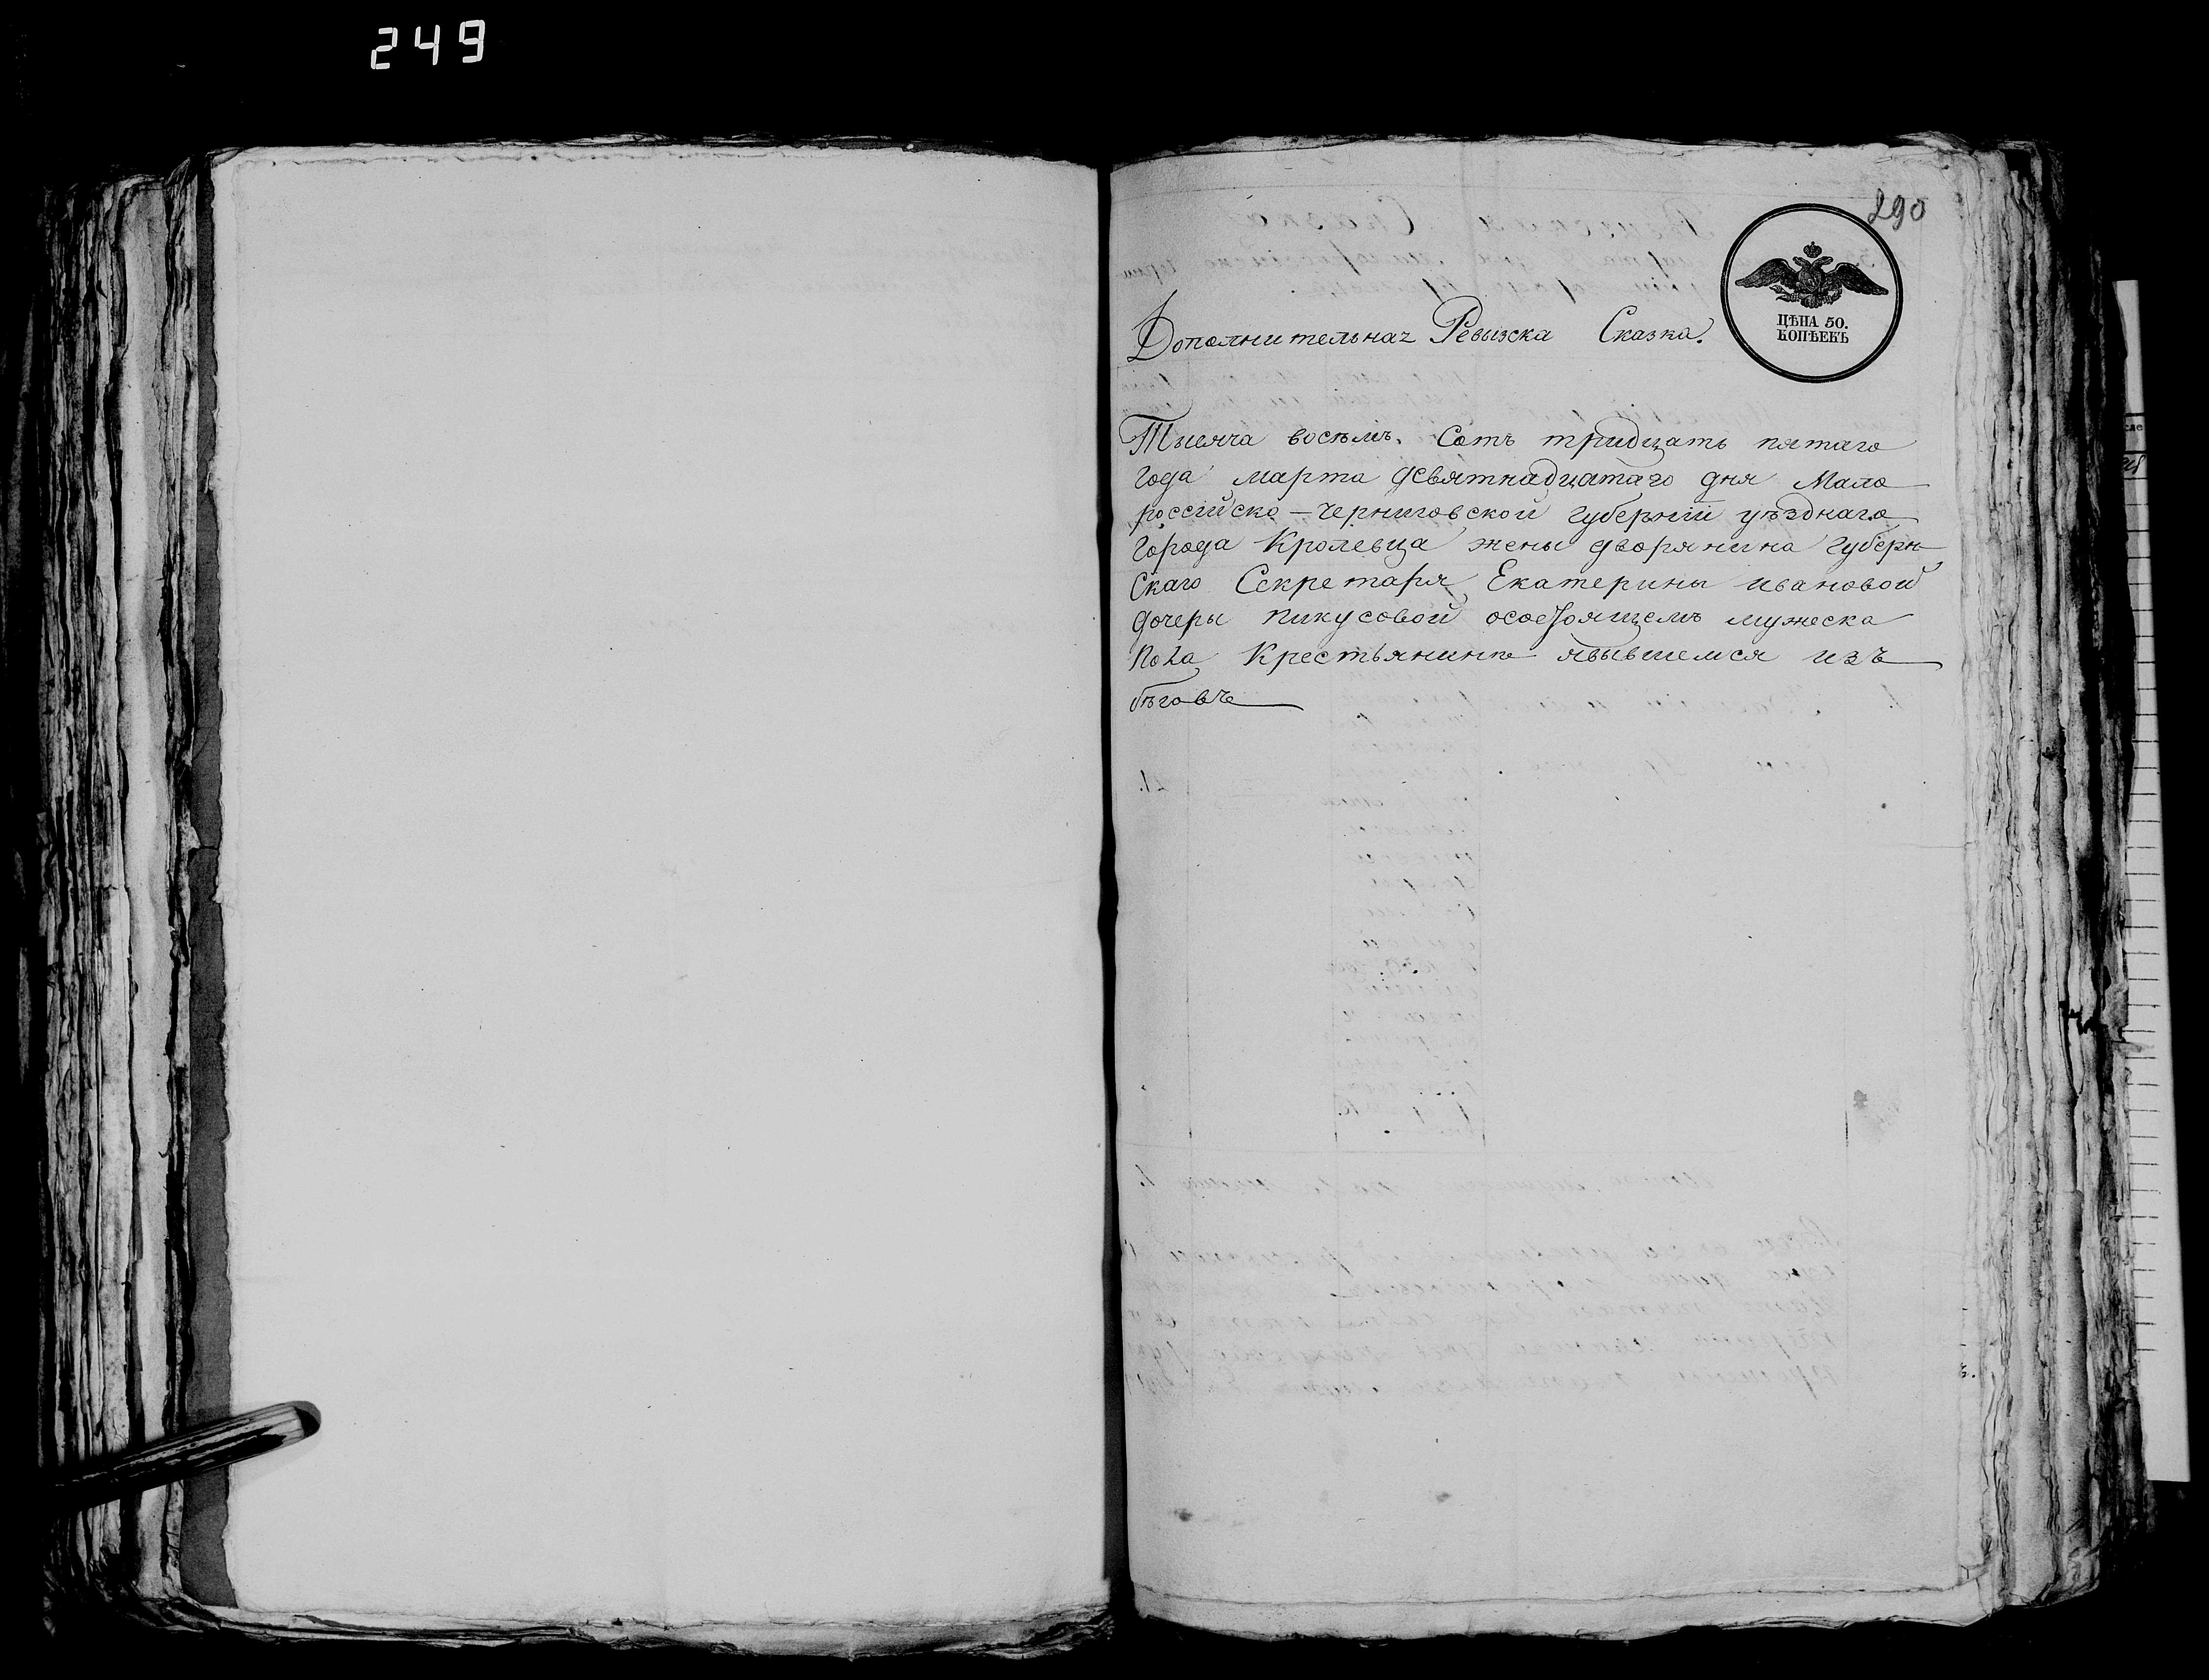 249
290
ЦѢНА 50.
КОПѢЕКЪ
Дополнительная Ревызска Сказка.
Тысяча восѣмъ. Сотъ тридцать пятаго
года марта девятнадцатаго дня Мало
россійско – Черниговской губерніи уѣзднаго
города Кролевца жены дворянина губерн
Скаго Секретаря Екатерины ивановой
дочеры пикусовой осостоящемъ мужеска
пола Крестьянине явывшемся изъ
бѣговъ